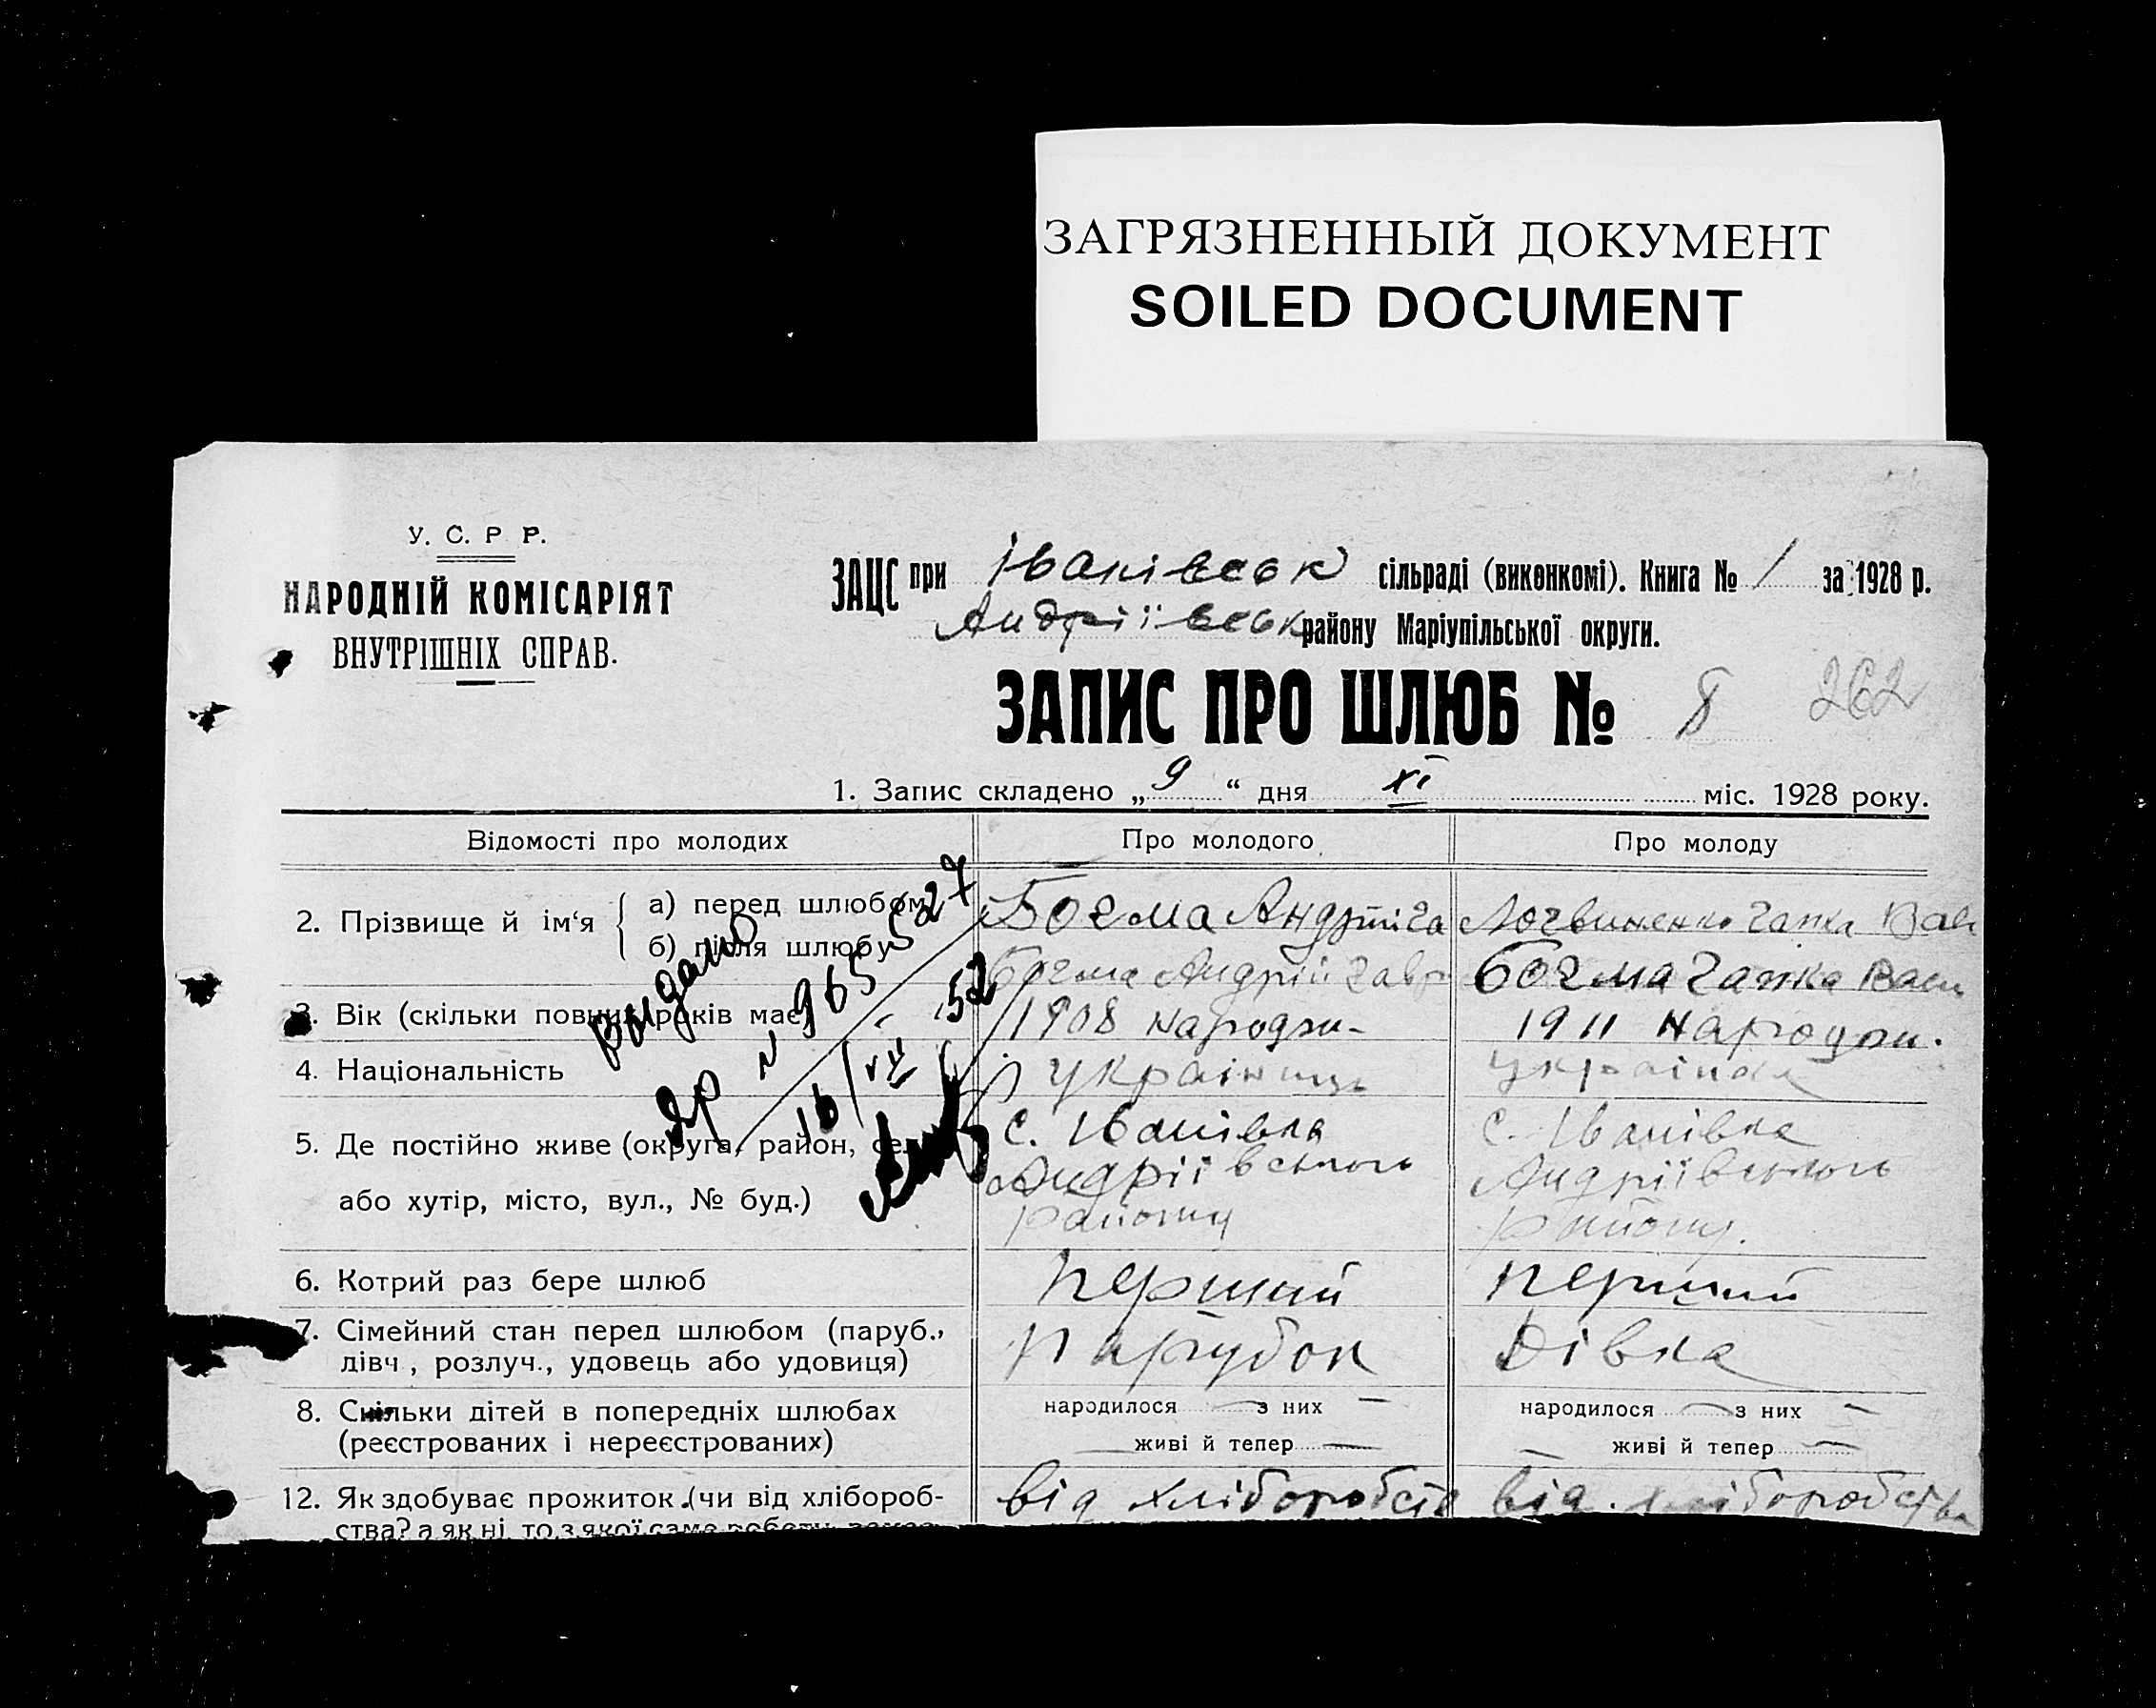 ЗАГРЯЗНЕННЫЙ ДОКУМЕНТ
SOILED DOCUMENT
У. С. Р Р.
НАРОДНІЙ КОМІСАРІЯТ
ВНУТРІШНІХ СПРАВ.
ЗАЦС при Іванівськ сільраді (виконкомі). Книга № 1 за 1928 р.
Андріївськ району Маріупільської округи.
ЗАПИС ПРО ШЛЮБ № 8 262
1. Запис складено „ 9 “ дня XI міс. 1928 року.
Відомості про молодих Про молодого Про молоду
2. Прізвище й ім‘я
а) перед шлюбом Богма Логвиненко Ва
б) після шлюбу Богма Андрій Гавр Богма Васи
3. Вік (скільки повних років має) 1908 народж- 1911 народж.
4. Національність українець українка
5. Де постійно живе (округа, район, се с. Іванівка с. Іванівка
Андріївського Андріївського
або хутір, місто, вул., № буд.) району району.
6. Котрий раз бере шлюб перший перший
7. Сімейний стан перед шлюбом (паруб., парубок Дівка
дівч , розлуч., удовець або удовиця)
8. Скільки дітей в попередніх шлюбах народилося — з них — народилося — з них —
(реєстрованих і нереєстрованих) — живі й тепер — — живі й тепер —
12. Як здобуває прожиток (чи від хлібороб- від хліборобств від. хліборобства
ства? а як ні, то з якої саме роботи
Видано
№ 965527
16/VII 52